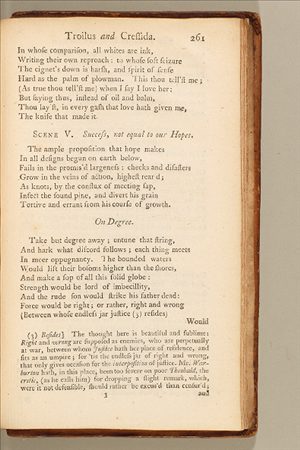 Troilus and Cressida. 261
In whose comparison, all whites are ink,
Writing their own reproach: to whose soft seizure
The cignet's down is harsh, and spirit of sense
Hard as the palm of plowman. This thou tell'st me;
(As true thou tell'st me) when I say I love her:
But saying thus, instead of oil and balm,
Thou lay'st, in every gash that love hath given me,
The knife that made it.
SCENE V. Success, not equal to our Hopes.
The ample proposition that hope makes
In all designs begun on earth below,
Fails in the promis'd largeness: checks and disasters
Grow in the veins of action, highest rear'd;
As knots, by the conflux of meeting sap,
Infect the sound pine, and divert his grain
Tortive and errant from his course of growth.
On Degree.
Take but degree away; untune that string,
And hark what discord follows; each thing meets
In meer oppugnancy. The bounded waters
Would lift their bosoms higher than the shores,
And make a sop of all this solid globe:
Strength would be lord of imbecillity,
And the rude son would strike his father dead:
Force would be right; or rather, right and wrong
(Between whose endless jar justice (3) resides)
Would
(3) Resides] The thought here is beautiful and sublime:
Right and wrong are supposed as enemies, who are perpetually
at war, between whom Justice hath her place of residence, and
sits as an umpire; for 'tis the endless jar of right and wrong,
that only gives occasion for the interposition of justice. Mr. War-
burton hath, in this place, been too severe on poor Theobald, the
critic, (as he calls him) for dropping a slight remark, which,
were it not defensible, should rather be excus'd than censur'd;
3 and